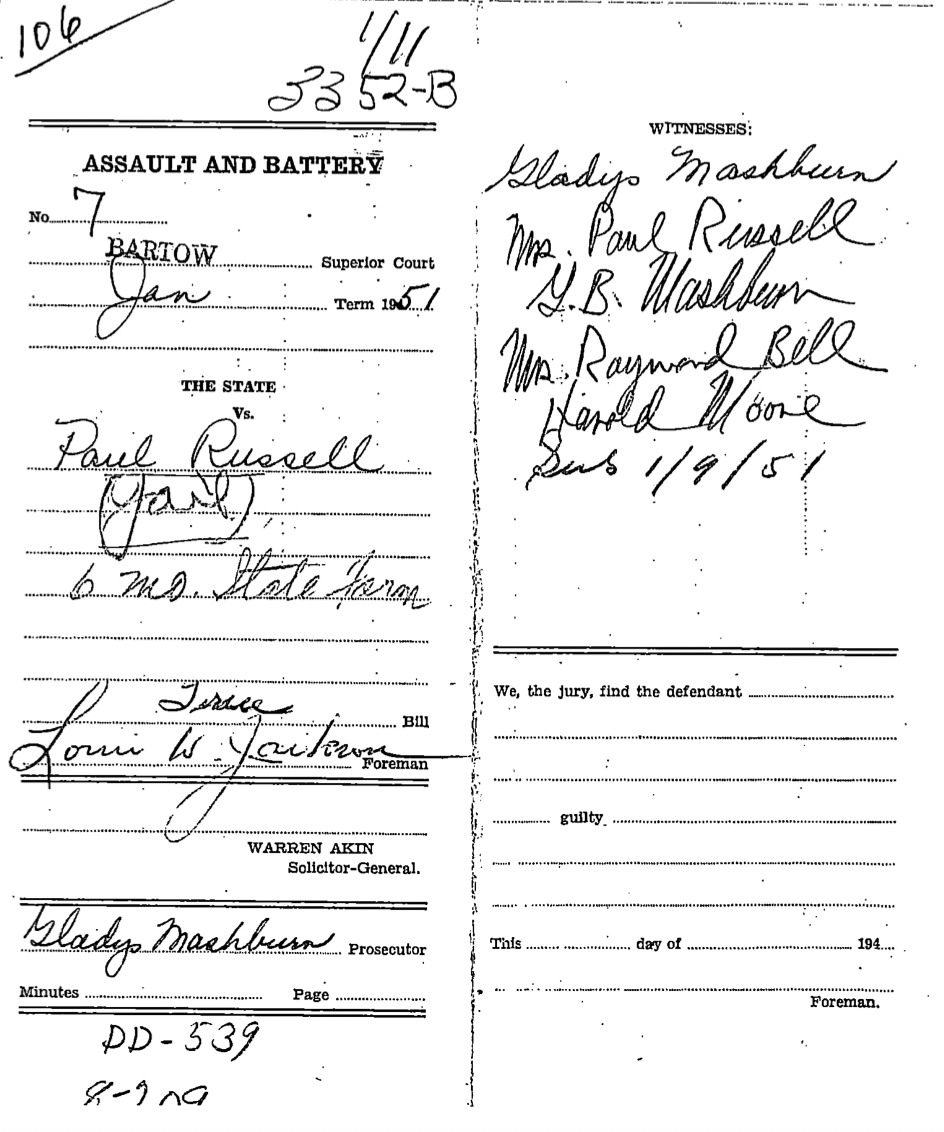 106
1/11
3352-B
ASSAULT AND BATTERY
No. 7
BARTOW Superior Court
Jan Term 1951
THE STATE
Vs.
Paul Russell
(Jail)
6 mo. State Farm
True Bill
W. Jackson Foreman
WARREN AKIN
Solicitor-General.
Gladys Mashburn Prosecutor
Minutes Page
DD-539
WITNESSES:
Gladys Mashburn
Mrs. Paul Russell
G.B. Mashburn
Mrs. Raymond Bell
Harold Moore
Sub 1/9/51
We, the jury, find the defendant
guilty
This day of 194
Foreman.